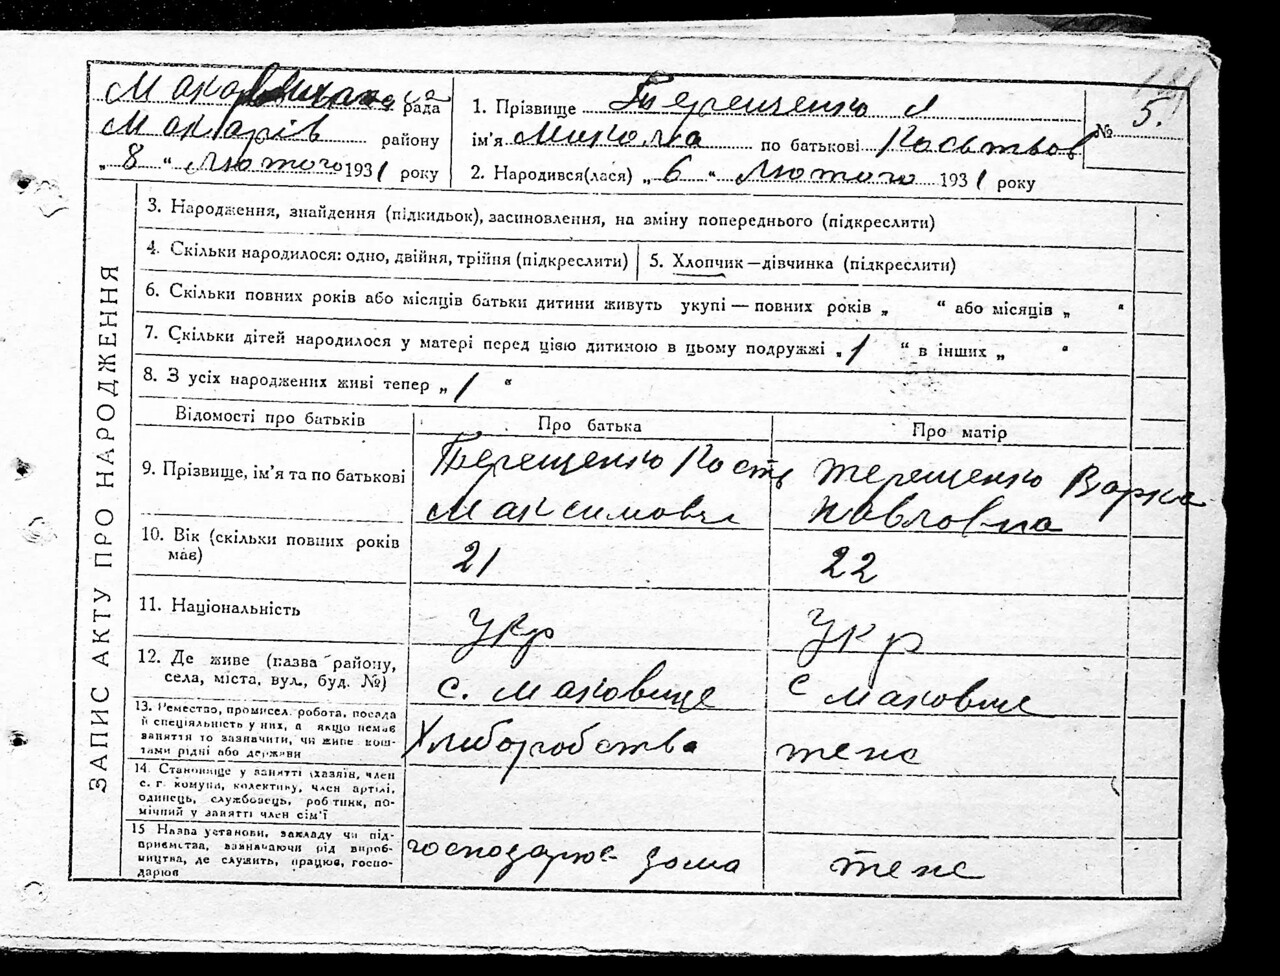 рада
Макарів району
„ 8 “ лютого 1931 року
1. Прізвище Терещенко
ім'я Микола по батькові Костьтьов
2. Народився(лася) „ 6 “ Лютого 1931 року
№ 5.
ЗАПИС АКТУ ПРО НАРОДЖЕННЯ
3. Народження, знайдення (підкидьок), засиновлення, на зміну попереднього (підкреслити)
4. Скільки народилося: одно, двійня, трійня (підкреслити)
5. Хлопчик—дівчинка (підкреслити)
6. Скільки повних років або місяців батьки дитини живуть укупі — повних років „ “ або місяців „ “
7. Скільки дітей народилося у матері перед цією дитиною в цьому подружжі „ 1 “ в інших „ “
8. З усіх народжених живі тепер „ 1 “
Відомості про батьків
Про батька
Про матір
9. Прізвище, ім'я та по батькові
Терещенко Кость
Максимович
терещенко Варка
Павловна
10. Вік (скільки повних років
має)
21
22
11. Національність
Укр
Укр
12. Де живе (назва району,
села, міста, вул., буд. №)
с. Маковище
с Маковище
13. Ремество, промисел, робота, посада
й спеціяльність у них, а якщо немає
заняття то зазначити, чи живе кош-
тами рідні або держави
Хлиборобства
теж
14. Становище у занятті (хазяїн, член
с. г. комуни, колективу, член артілі,
одинець, службовець, робітник, по-
мічний у занятті член сім'ї
15 Назва установи, закладу чи під-
приємства, зазначаючи рід вироб-
ництва, де служить, працює, госпо-
дарює
господарює дома
теж